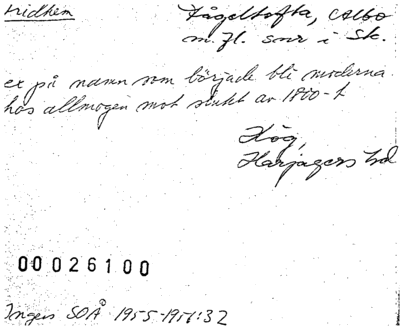 Fridhem
Fågeltofta, Albo
m.fl. snr i Sk.
ex på namn som började bli moderna
hos allmogen mot slutet av 1800-t
Hög,
Harjagers hd
00026100
Ingers SOÅ 1955-1956:32